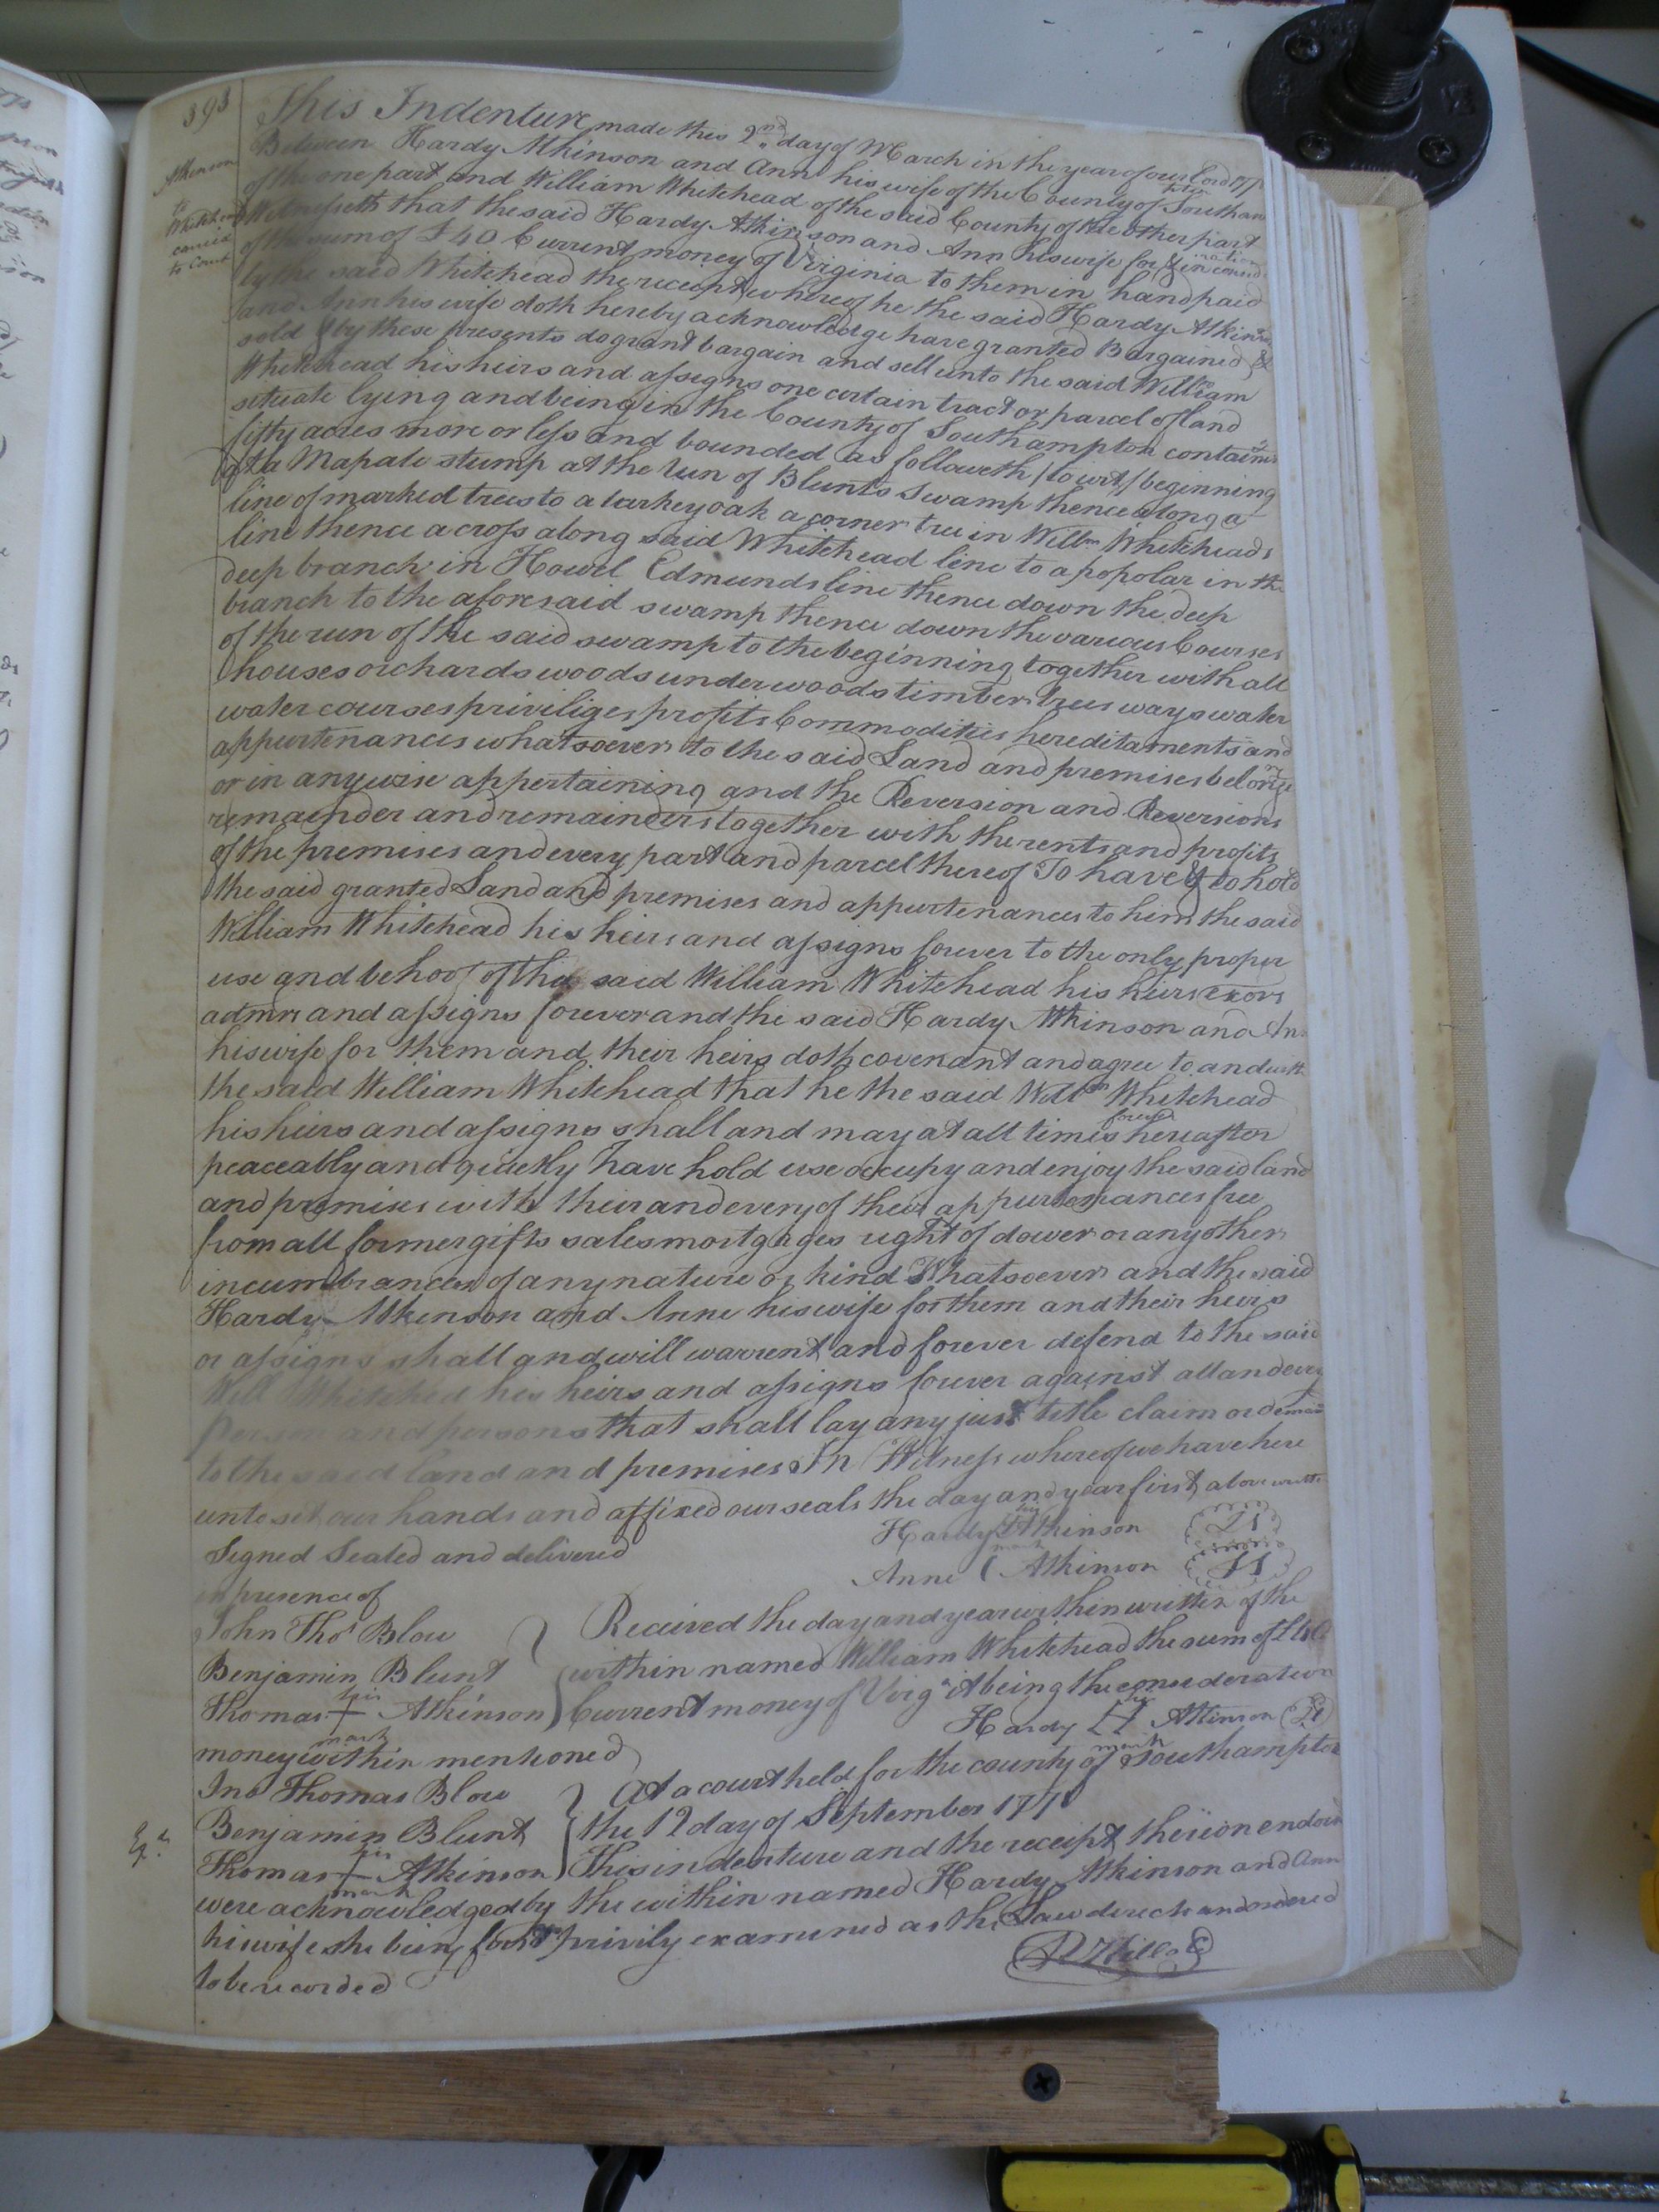 393
Atkinson
to
Whitehead
This Indenture made this 2nd day of March in the year of our Lord
Between Hardy Atkinson and Ann his wife of the County of Southam
of the one part and William Whitehead of the said County of the other part
Witnesseth that the said Hardy Atkinson and Ann his wife for & in
of the sum of £40 Current money of Virginia to them in hand paid
by the said Whitehead the receipt whereof he the said Hardy Atkinson
and Ann his wife doth hereby acknowledge have granted Bargained &
sold & by these presents do grant bargain and sell unto the said William
Whitehead his heirs and assigns one certain tract or parcel of land
situate lying and being in the County of Southampton
fifty acres more or less and bounded as followeth /to wit/ beginning
at a Mapale stump at the run of Blunts Swamp thence along a
line of marked trees to a turkey oak a corner tree in Willm Whiteheads
line thence across along said Whitehead line to a popolar in the
deep branch in Howel Edmunds line thence down the deep
branch to the aforesaid swamp thence down the various Courses
of the run of the said swamp to the beginning together with all
houses orchards woods underwoods timber trees ways water
water courses priviliges profits Commodities hereditaments and
appurtenances whatsoever to the said Land and premises belonging
or in any wise appertaining and the Reversion and Reversions
remainder and remainders together with the rents and profits
of the premises and every part and parcel thereof To have & to hold
the said granted Land and premises and appurtenances to him the said
William Whitehead his heirs and assigns forever to the only proper
use and behoof of the said William Whitehead his heirs exors
admrs and assigns forever and the said Hardy Atkinson and Ann
his wife for them and their heirs doth covenant and agree to and with
the said William Whitehead that he the said Willm Whitehead
his heirs and assigns shall and may at all times forever hereafter
peaceably and quietly have hold use occupy and enjoy the said land
and premises with their and every of their appurtenances free
from all former gifts sales mortgages right of dower or any other
incumbrances of any nature or kind Whatsoever and the said
Hardy Atkinson and Anne his wife for them and their heirs
or assigns shall and will warrent and forever defend to the said
Will Whitehed his heirs and assigns forever against all and every
person and persons that shall lay any just title claim or demand
to the said land and premises In Witness whereof we have here
unto set our hands and affixed our seals the day and year first above
Signed Sealed and delivered
in presence of
John Thos Blow
Benjamin Blunt
Thomas his + mark Atkinson
Hardy his mark Atkinson LS
Anne ( Atkinson LS
Received the day and year within written of the
within named William Whitehead the sum of £40
Current money of Virga it being the consideration
money within mentioned
Hardy his H mark Atkinson LS
Jno Thomas Blow
Benjamin Blunt
Thomas his + mark Atkinson
At a court held for the county of Southampton
the 12 day of September 177
This indenture and the receipt thereon
were acknowledged by the within named Hardy Atkinson and Ann
his wife she being first privily examined as the Law directs and ordered
to be recorded